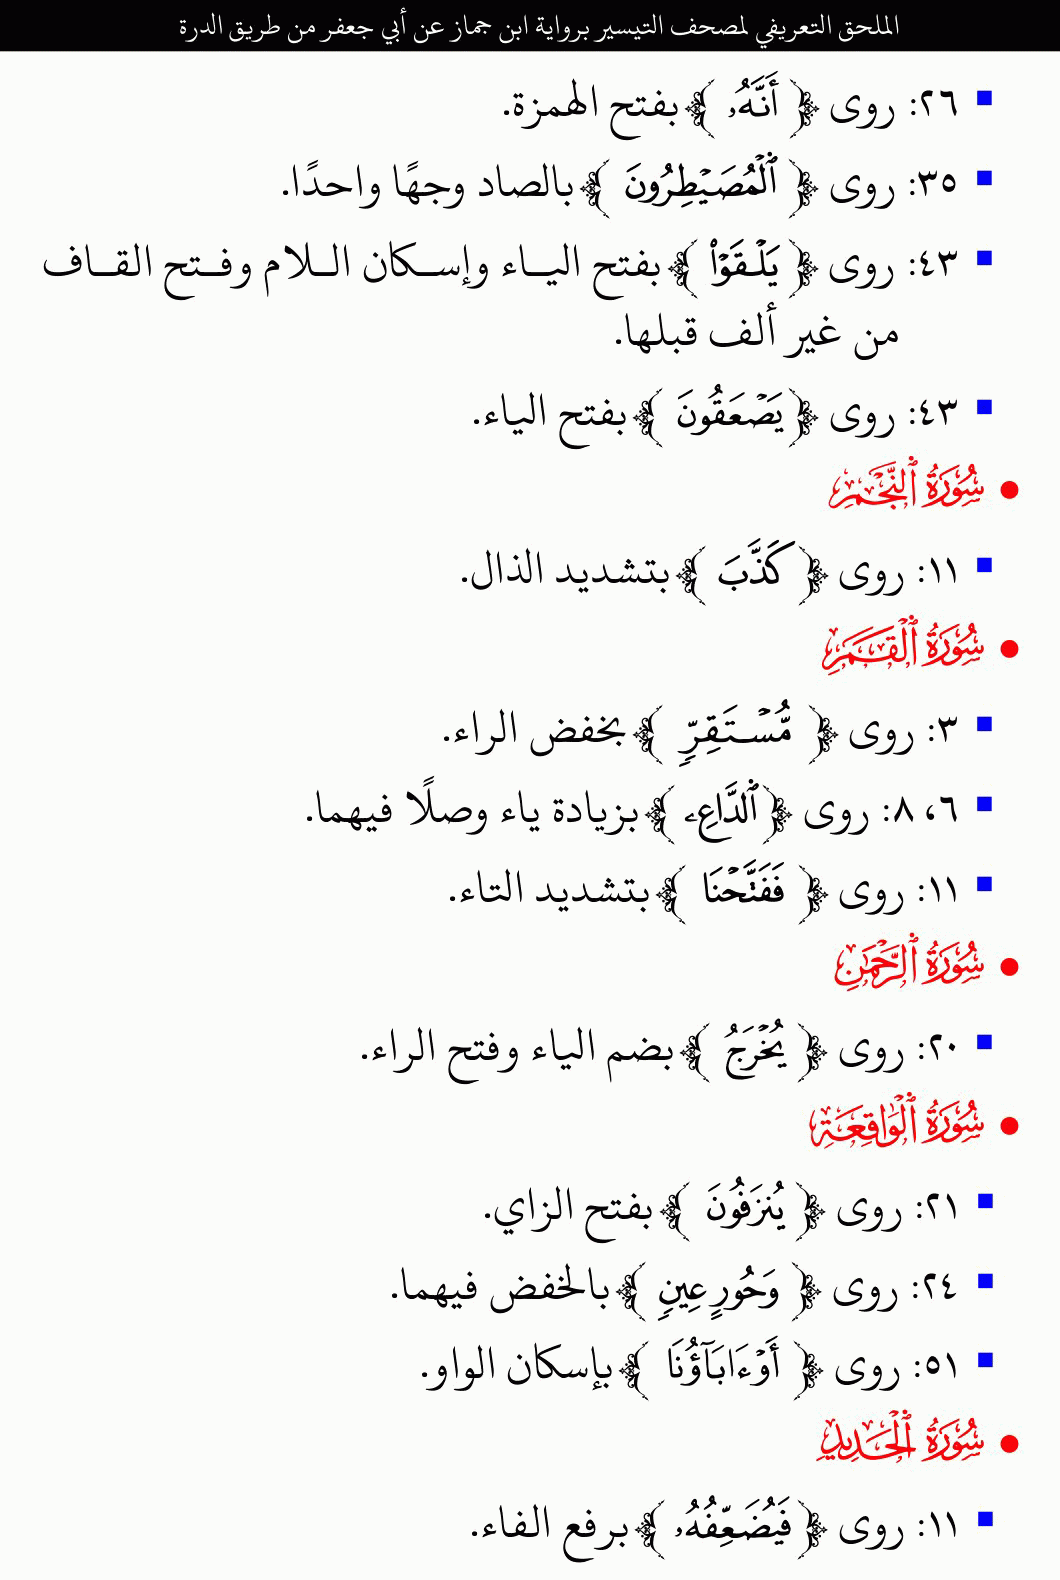 الملحق التعريفي لمصحف التيسير برواية ابن جماز عن أبي جعفر من طريق الدرة
٢٦: روى ﴿ أَنَّهُۥ ﴾ بفتح الهمزة.
٣٥: روى ﴿ ٱلۡمُصَيۡطِرُونَ ﴾ بالصاد وجهًا واحدًا.
٤٣: روى ﴿ يَلۡقَوۡاْ ﴾ بفتح اليـاء وإسـكان الـلام وفـتح القـاف
من غير ألف قبلها.
٤٣: روى ﴿ يَصۡعَقُونَ ﴾ بفتح الياء.
سُورَةُ ٱلنَّجۡمِ
١١: روى ﴿ كَذَّبَ ﴾ بتشديد الذال.
سُورَةُ ٱلۡقَمَرِ
٣: روى ﴿ مُّسۡتَقِرّٖ ﴾ بخفض الراء.
٦، ٨: روى ﴿ ٱلدَّاعِۦ ﴾ بزيادة ياء وصلًا فيهما.
١١: روى ﴿ فَفَتَّحۡنَا ﴾ بتشديد التاء.
سُورَةُ ٱلرَّحۡمَٰنِ
٢٠: روى ﴿ يُخۡرَجُ ﴾ بضم الياء وفتح الراء.
سُورَةُ ٱلۡوَاقِعَةِ
٢١: روى ﴿ يُنزَفُونَ ﴾ بفتح الزاي.
٢٤: روى ﴿ وَحُورٍ عِينٖ ﴾ بالخفض فيهما.
٥١: روى ﴿ أَوۡءَابَآؤُنَا ﴾ بإسكان الواو.
سُورَةُ ٱلۡحَدِيدِ
١١: روى ﴿ فَيُضَعِّفُهُۥ ﴾ برفع الفاء.